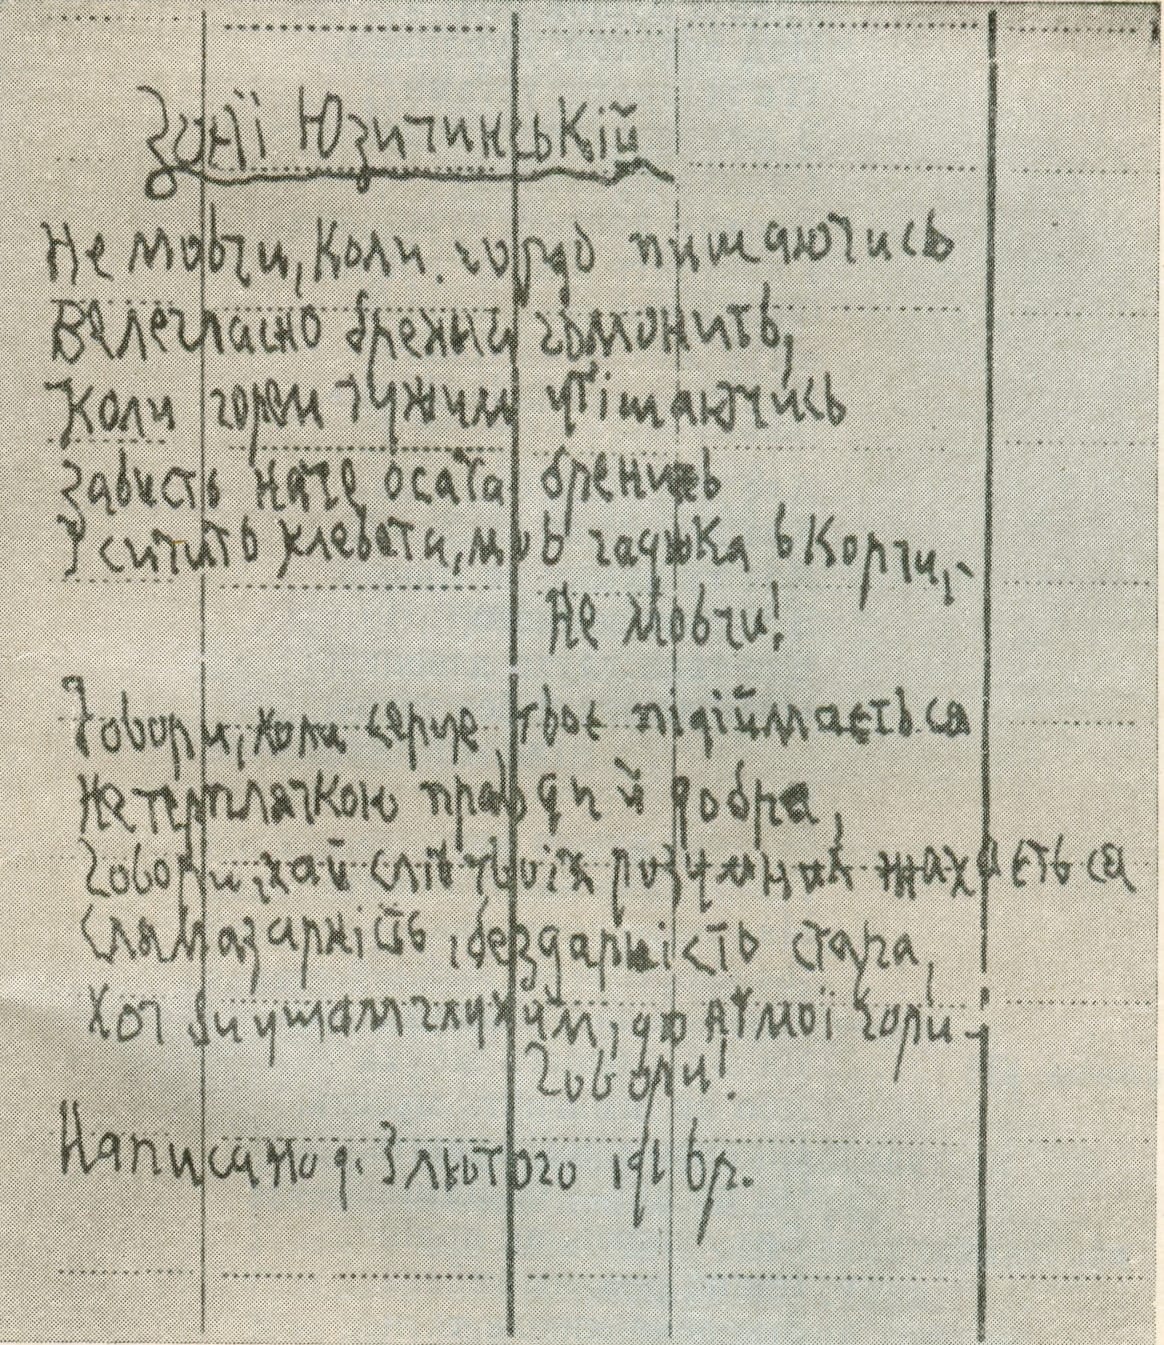 Зонї Юзичинській
Не мовчи, коли гордо пишаючись
Велегласно брехня гомонить,
Коли горем чужим утїшаючись
Зависть наче оса та бренить
І сичить клевета, мов гадюка в корчи, -
Не мовчи!
Говори, коли серце твоє підіймаєть ся
Нетерплячкою правди й добра,
Говори, хай слів твоїх розумних жахаєть ся
Слямазарність, бездарність стара,
Хоч би ушам глухим, до нїмої гори -
Говори!
Написано д. 3 лютого 1916 р.